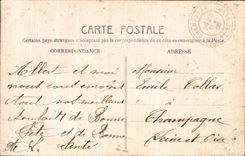 CARTE POSTALE
Tous les pays étrangers n'acceptent pas la correspondance de ce côté se renseigner à la Poste.
CORRESPONDANCE
ADRESSE
Albert et moi
nous vous envoyons
nos meilleurs
souhaits de Bonne
Fête et de Bonne
Santé
Monsieur
Emile Collas
à
Champagne
Seine et Oise